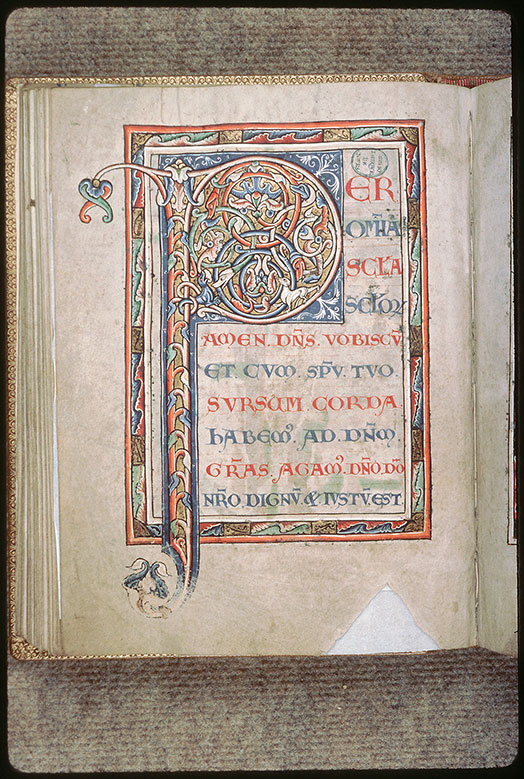 PER
OM̄IA
SC̄LA
SC̄LOꝜ
AMEN. DN̄S. VOBISCŪ
ET CVM. SPV̄. TVO.
SVRSUM. CORDA
hABEM'. AD. DN̄M.
GR̄AS. AGAM'. DN̄O. DŌ
NR̄O. DIGNŪ & IVSTŪ EST.